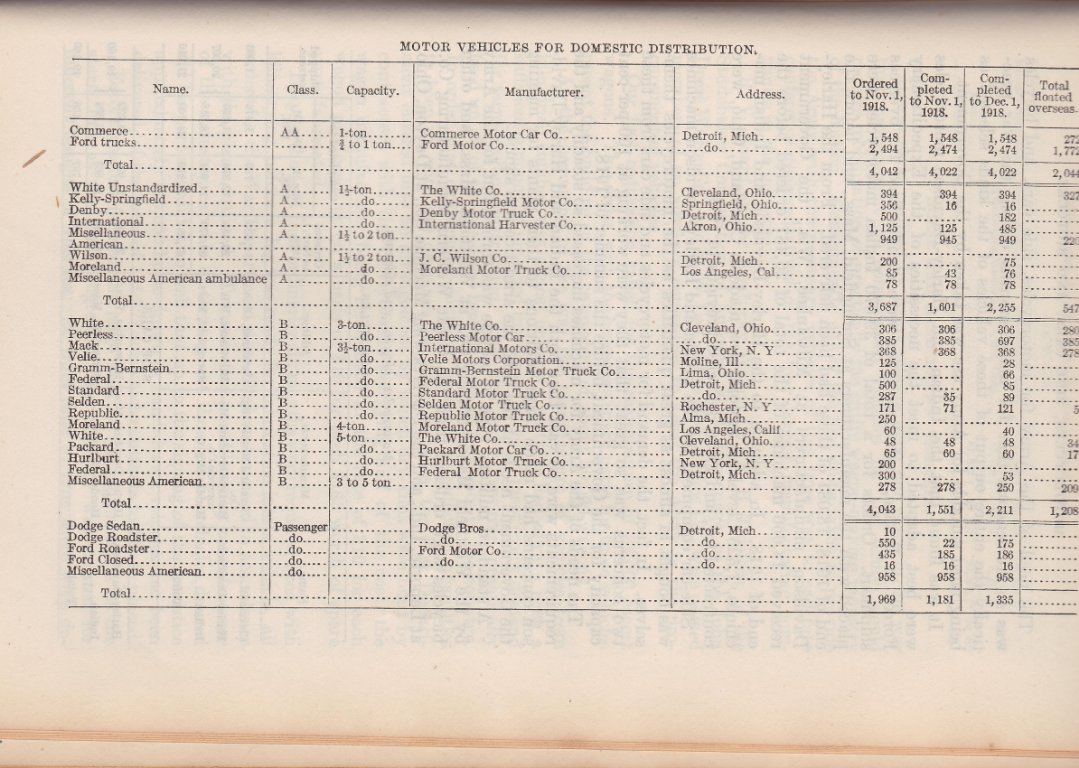 MOTOR VEHICLES FOR DOMESTIC DISTRIBUTION.
Name. Class. Capacity. Manufacturer. Address. Ordered to Nov. 1, 1918. Com-pleted to Nov. 1, 1918. Com-pleted to Dec. 1, 1918. Total floated overseas.
Commerce AA 1-ton Commerce Motor Car Co Detroit, Mich 1,548 1,548 1,548 272
Ford trucks ¾ to 1 ton Ford Motor Co do 2,494 2,474 2,474 1,772
Total 4,042 4,022 4,022 2,044
White Unstandardized A 1½-ton The White Co Cleveland, Ohio 394 394 394 327
Kelly-Springfield A do Kelly-Springfield Motor Co Springfield, Ohio 356 16 16
Denby A do Denby Motor Truck Co Detroit, Mich 500 182
International A do International Harvester Co Akron, Ohio 1,125 125 485
Miscellaneous A 1½ to 2 ton 949 945 949 220
American
Wilson A 1½ to 2 ton J. C. Wilson Co Detroit, Mich 200 75
Moreland A do Moreland Motor Truck Co Los Angeles, Cal 85 43 76
Miscellaneous American ambulance A do 78 78 78
Total 3,687 1,601 2,255 547
White B 3-ton The White Co Cleveland, Ohio 306 306 306 280
Peerless B do Peerless Motor Car do 385 385 697 385
Mack B 3½-ton International Motors Co New York, N. Y 368 368 368 278
Velie B do Velie Motors Corporation Moline, Ill 125 28
Gramm-Bernstein B do Gramm-Bernstein Motor Truck Co Lima, Ohio 100 66
Federal B do Federal Motor Truck Co Detroit, Mich 500 85
Standard B do Standard Motor Truck Co do 287 35 89
Selden B do Selden Motor Truck Co Rochester, N. Y 171 71 121 5
Republic B do Republic Motor Truck Co Alma, Mich 250
Moreland B 4-ton Moreland Motor Truck Co Los Angeles, Calif 60 40
White B 5-ton The White Co Cleveland, Ohio 48 48 48 34
Packard B do Packard Motor Car Co Detroit, Mich 65 60 60 17
Hurlburt B do Hurlburt Motor Truck Co New York, N. Y 200
Federal B do Federal Motor Truck Co Detroit, Mich 300 53
Miscellaneous American B 3 to 5 ton 278 278 250 209
Total 4,043 1,551 2,211 1,208
Dodge Sedan Passenger Dodge Bros Detroit, Mich 10
Dodge Roadster do do do 550 22 175
Ford Roadster do Ford Motor Co do 435 185 186
Ford Closed do do do 16 16 16
Miscellaneous American do 958 958 958
Total 1,969 1,181 1,335